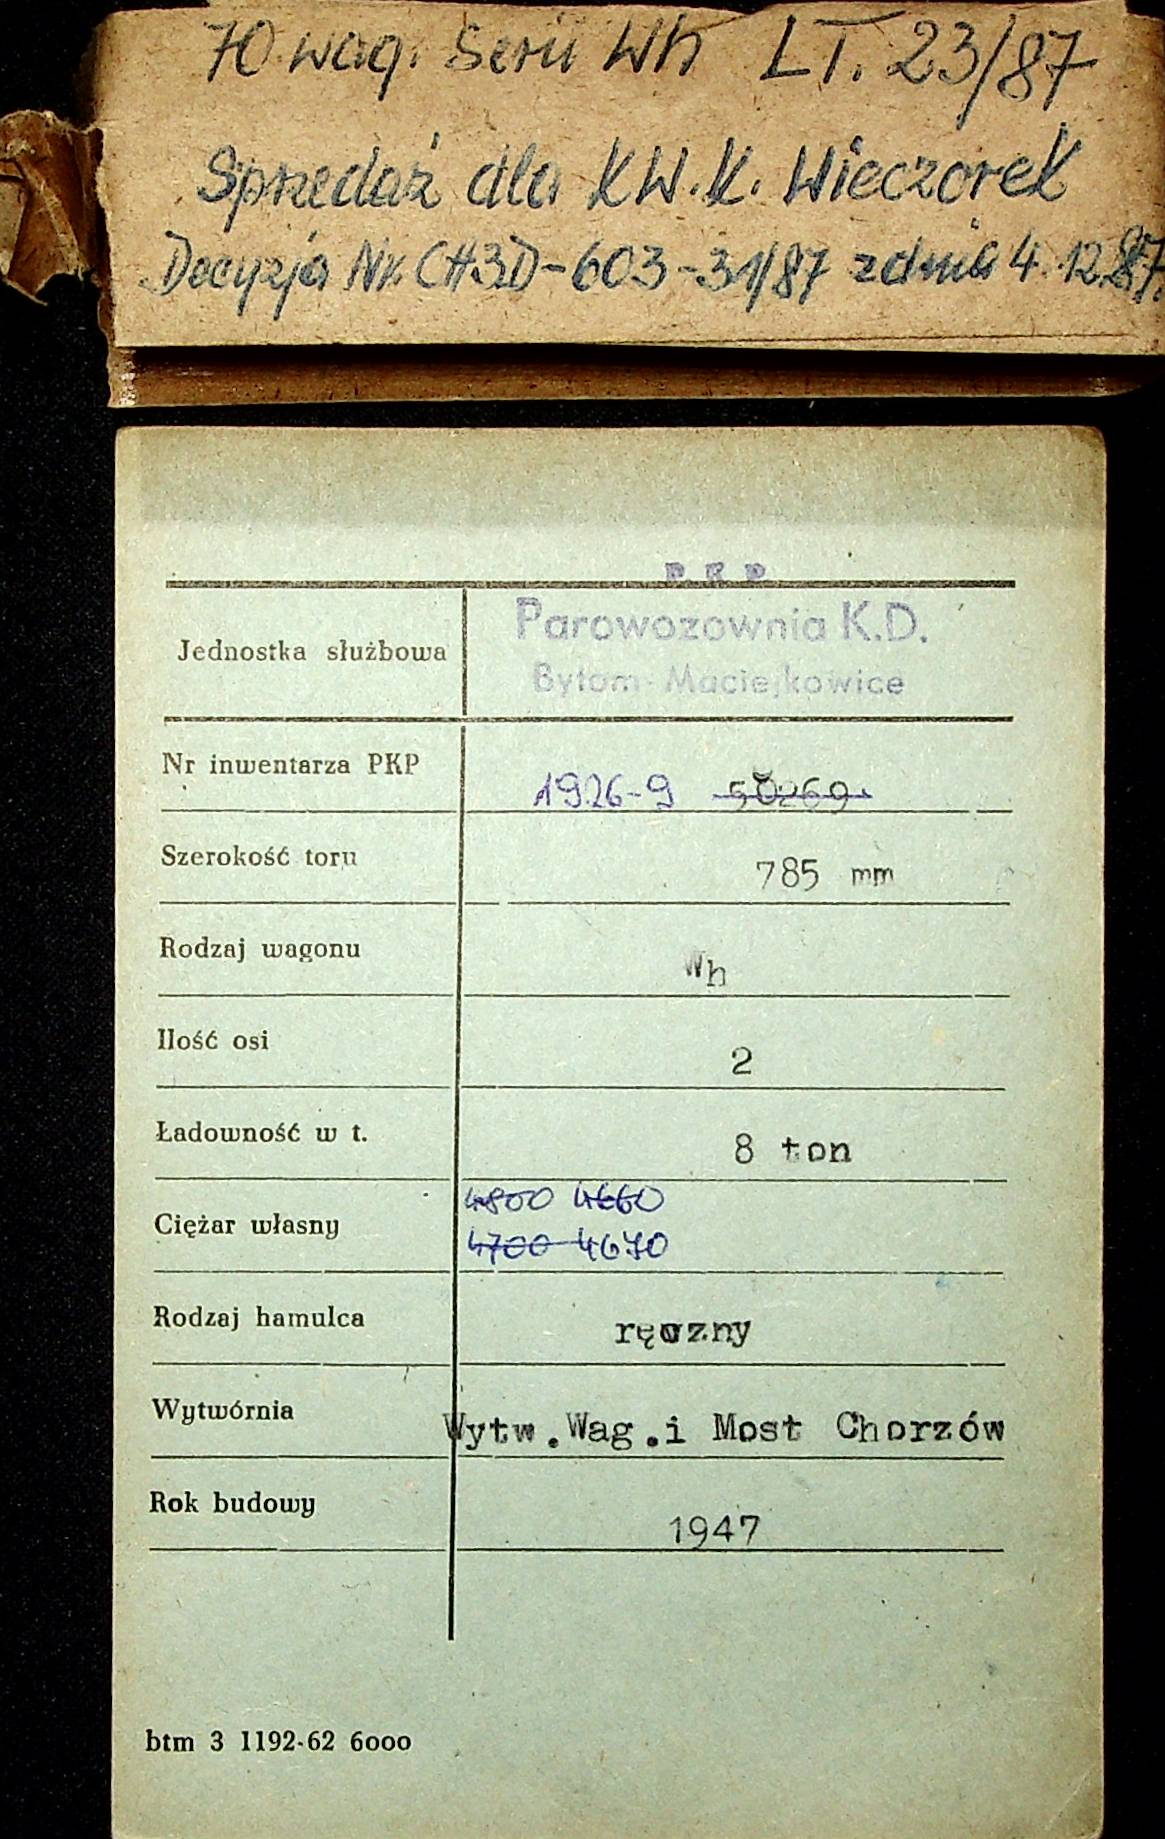 70 wag. Serii Wh LT. 23/87
Sprzedaż dla KW.K. Wieczorek
Decyzja Nr. CH3D-603-31/87 z dnia 4.12.87.
P K P
Jednostka służbowa Parowozownia K.D.
Bytom-Maciejkowice
Nr inwentarza PKP 1926-9 50269
Szerokość toru 785 mm
Rodzaj wagonu Wh
Ilość osi 2
Ładowność w t. 8 ton
4800 4660
Ciężar własny 4700 4670
Rodzaj hamulca ręczny
Wytwórnia Wytw.Wag.i Most Chorzów
Rok budowy 1947
btm 3 1192-62 6000